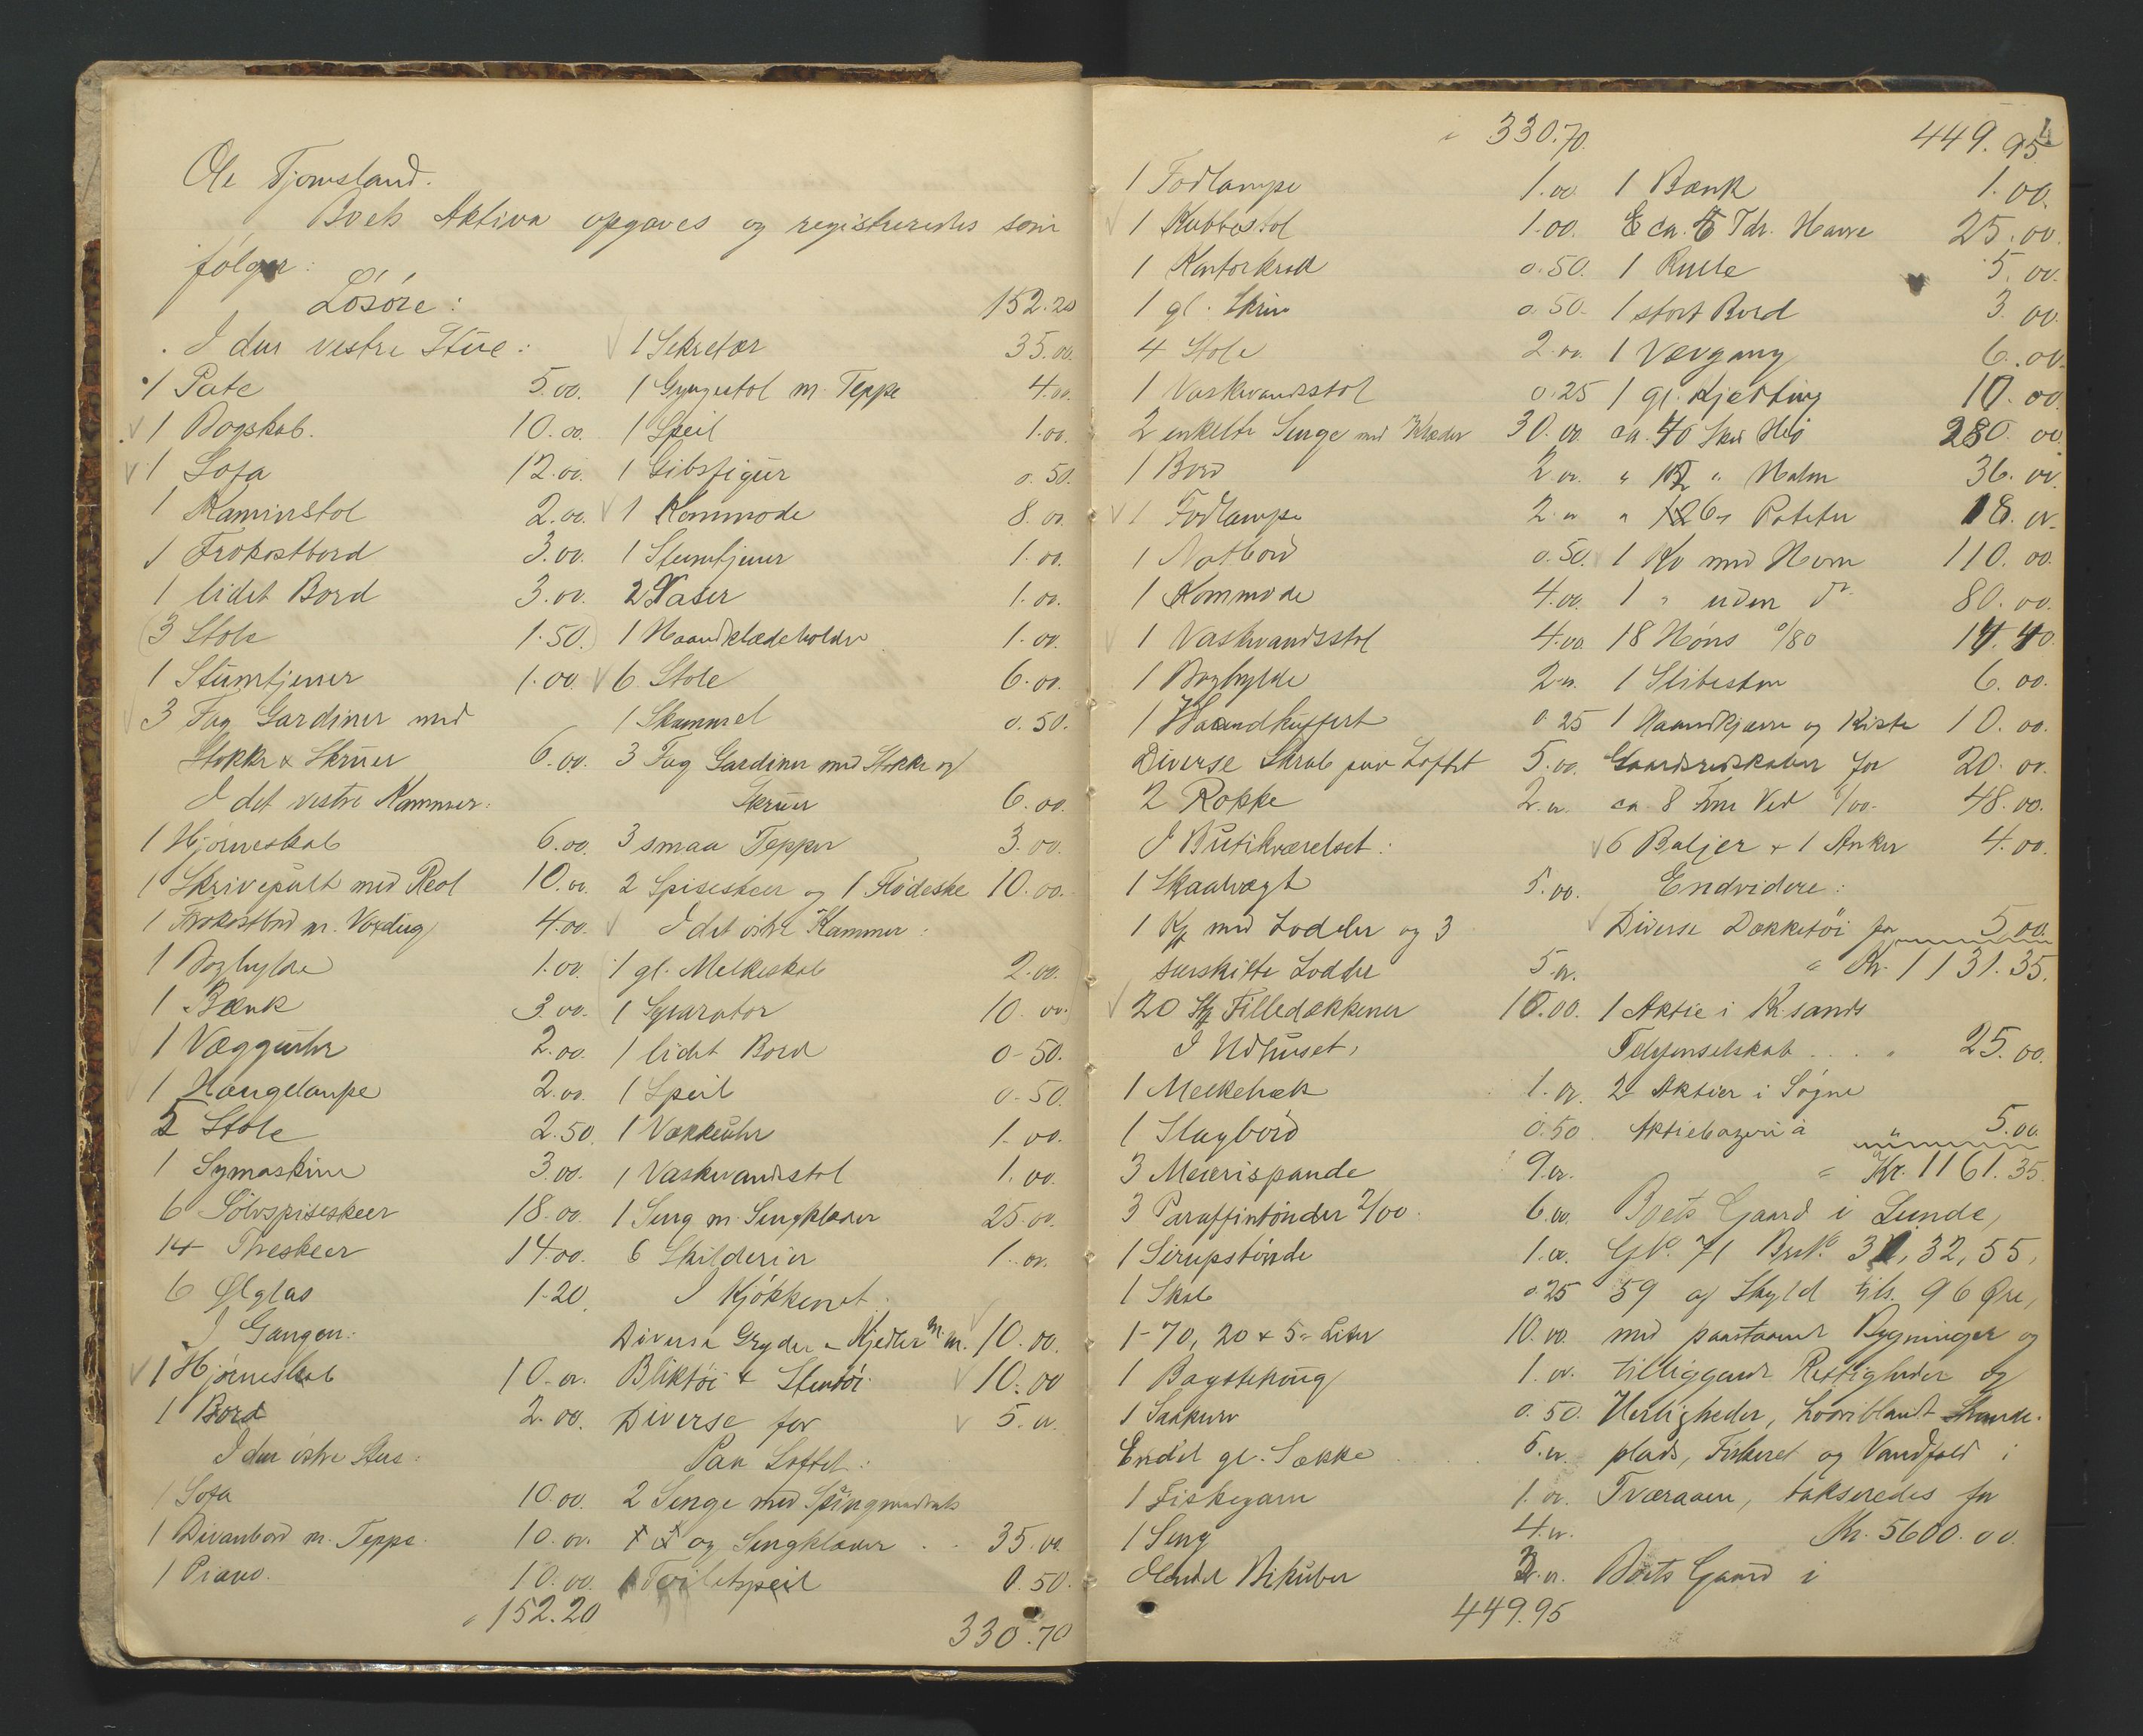 Ole Tjomsland.
Boets Aktiva opgaves og registreredes som
følger:
Løsøre:
I den vestre Stue:
1 Pute 5.00.
1 Bogskab. 10.00.
1 Sofa 12.00.
1 Kaminstol 2.00.
1 Frokostbord 3.00.
1 lidet Bord 3.00.
3 Stole 1.50.
1 Stumtjener 1.00
3 Fag Gardiner med
Stokke & Skruer 6.00.
I det vestre Kammer:
1 Hjørneskab 6.00.
1 Skrivepult med Reol 10.00.
1 Frokostbord m. Voxdug 4.00.
1 Boghylde 1.00.
1 Bænk 3.00.
1 Væggeuhr 2.00.
1 Hængelampe 2.00.
5 Stole 2.50.
1 Symaskine 3.00.
6 Sølvspiseskeer 18.00.
14 Theskeer 14.00.
6 Ølglas 1.20.
I Gangen:
1 Hjørneskab 10.00.
1 Bord 2.00.
I den østre Stue:
1 Sofa 10.00.
1 Divanbord m. Teppe. 10.00.
1 Piano. 10.00.
152.20
152.20
1 Sekretær 35.00.
1 Gyngestol m. Teppe 4.00.
1 Speil 1.00.
1 Gibsfigur 0.50.
1 Kommode 8.00.
1 Stumtjener 1.00.
2 Vaser 1.00.
1 Haandklædeholder 1.00.
6 Stole 6.00.
1 Skammel 0.50.
3 Fag Gardiner med Stokke og
Skruer 6.00.
3 smaa Tepper 3.00.
2 Spiseskeer og 1 Flødeske 10.00.
I det østre Kammer:
1 gl. Melkeskab 2.00.
1 Separator 10.00.
1 lidet Bord 0-50.
1 Speil 0-50.
1 Vækkeuhr 1.00.
1 Vaskevandsstol 1.00.
1 Seng m. Sengklæder 25.00.
6 Skilderier 1.00.
I Kjøkkenet:
Diverse Gryder & Kjedler m.m. 10.00.
Bliktøi & Stentøi 10.00
Diverse for 5.00.
Paa Loftet:
2 Senge med Springmadrats
og Sengklæder 35.00.
1 Toiletspeil 0.50.
330.70
330.70.
1 Fodlampe 1.00.
1 Kubbestol 1.00.
1 Kontorkrak 0.50.
1 gl. Skrin 0.50.
4 Stole 2.00.
1 Vaskevandsstol 0.25
2 enkelte Senge med Klæder 30.00.
1 Bord 2.00.
1 Fodlampe 2.00
1 Natbord 0.50.
1 Kommode 4.00.
1 Vaskevandsstol 4.00.
1 Boghylde 2.00.
1 Haandkuffert 0.25
Diverse Skrab paa Loftet 5.00.
2 Rokke 2.00.
I Butikværelset:
1 Skaalvægt 5.00.
1 Kg med Lodder og 3
særskilte Lodder 5.00.
20 Kg Filledækkener 10.00.
I Udhuset,
1 Melkebæk 1.00.
1 Slagbord 0.50
3 Meierispande 9.00.
3 Paraffintønder 2/00. 6.00.
1 Sirupstønde 1.00.
1 Skab 0.25
1-70, 20 & 5- Liter 10.00.
1 Bagstehung 1.00.
1 Saakurv 0.50.
Endel gl. Sække 5.00.
1 Fiskegarn 1.00.
1 Seng 4.00.
Endel Bikuber 3.00.
449.95
449.95
1 Bænk 1.00.
ca. 5 Tdr. Havre 25.00.
1 Rulle 5.00.
1 stort Bord 3.00.
1 Vævgang 6.00.
1 gl. Kjetting 10.00.
ca. 40 Skd Hø 280.00.
" 12 " Halm 36.00.
" 6 " Poteter 18.00.
1 Ko med Horn 110.00.
1 " uden do. 80.00.
18 Høns 0/80 14.40.
1 Slibesten 6.00.
1 Haandkjærre og Kiste 10.00.
Gaardsredskaber for 20.00.
ca 8 Favne Ved 6/00. 48.00.
6 Baljer & 1 Anker 4.00.
Endvidere:
Diverse Dækketøi for 5.00.
Kr. 1131.35.
1 Aktie i Kr.sands
Telefonselskab.... " 25.00.
2 Aktier i Søgne
Aktiebageri a " 5.00.
Kr. 1161.35.
Boets Gaard i Lunde,
GNo. 71 BrsNo. 31, 32, 55,
59 af Skyld tils. 96 Øre,
med paastaaende Bygninger og
tilliggende Rettigheder og
Herligheder, hvoriblandt Strande-
plads, Fiskeret og Vandfald i
Tværaaen, takseredes for
Kr. 5600.00.
Boets Gaard i